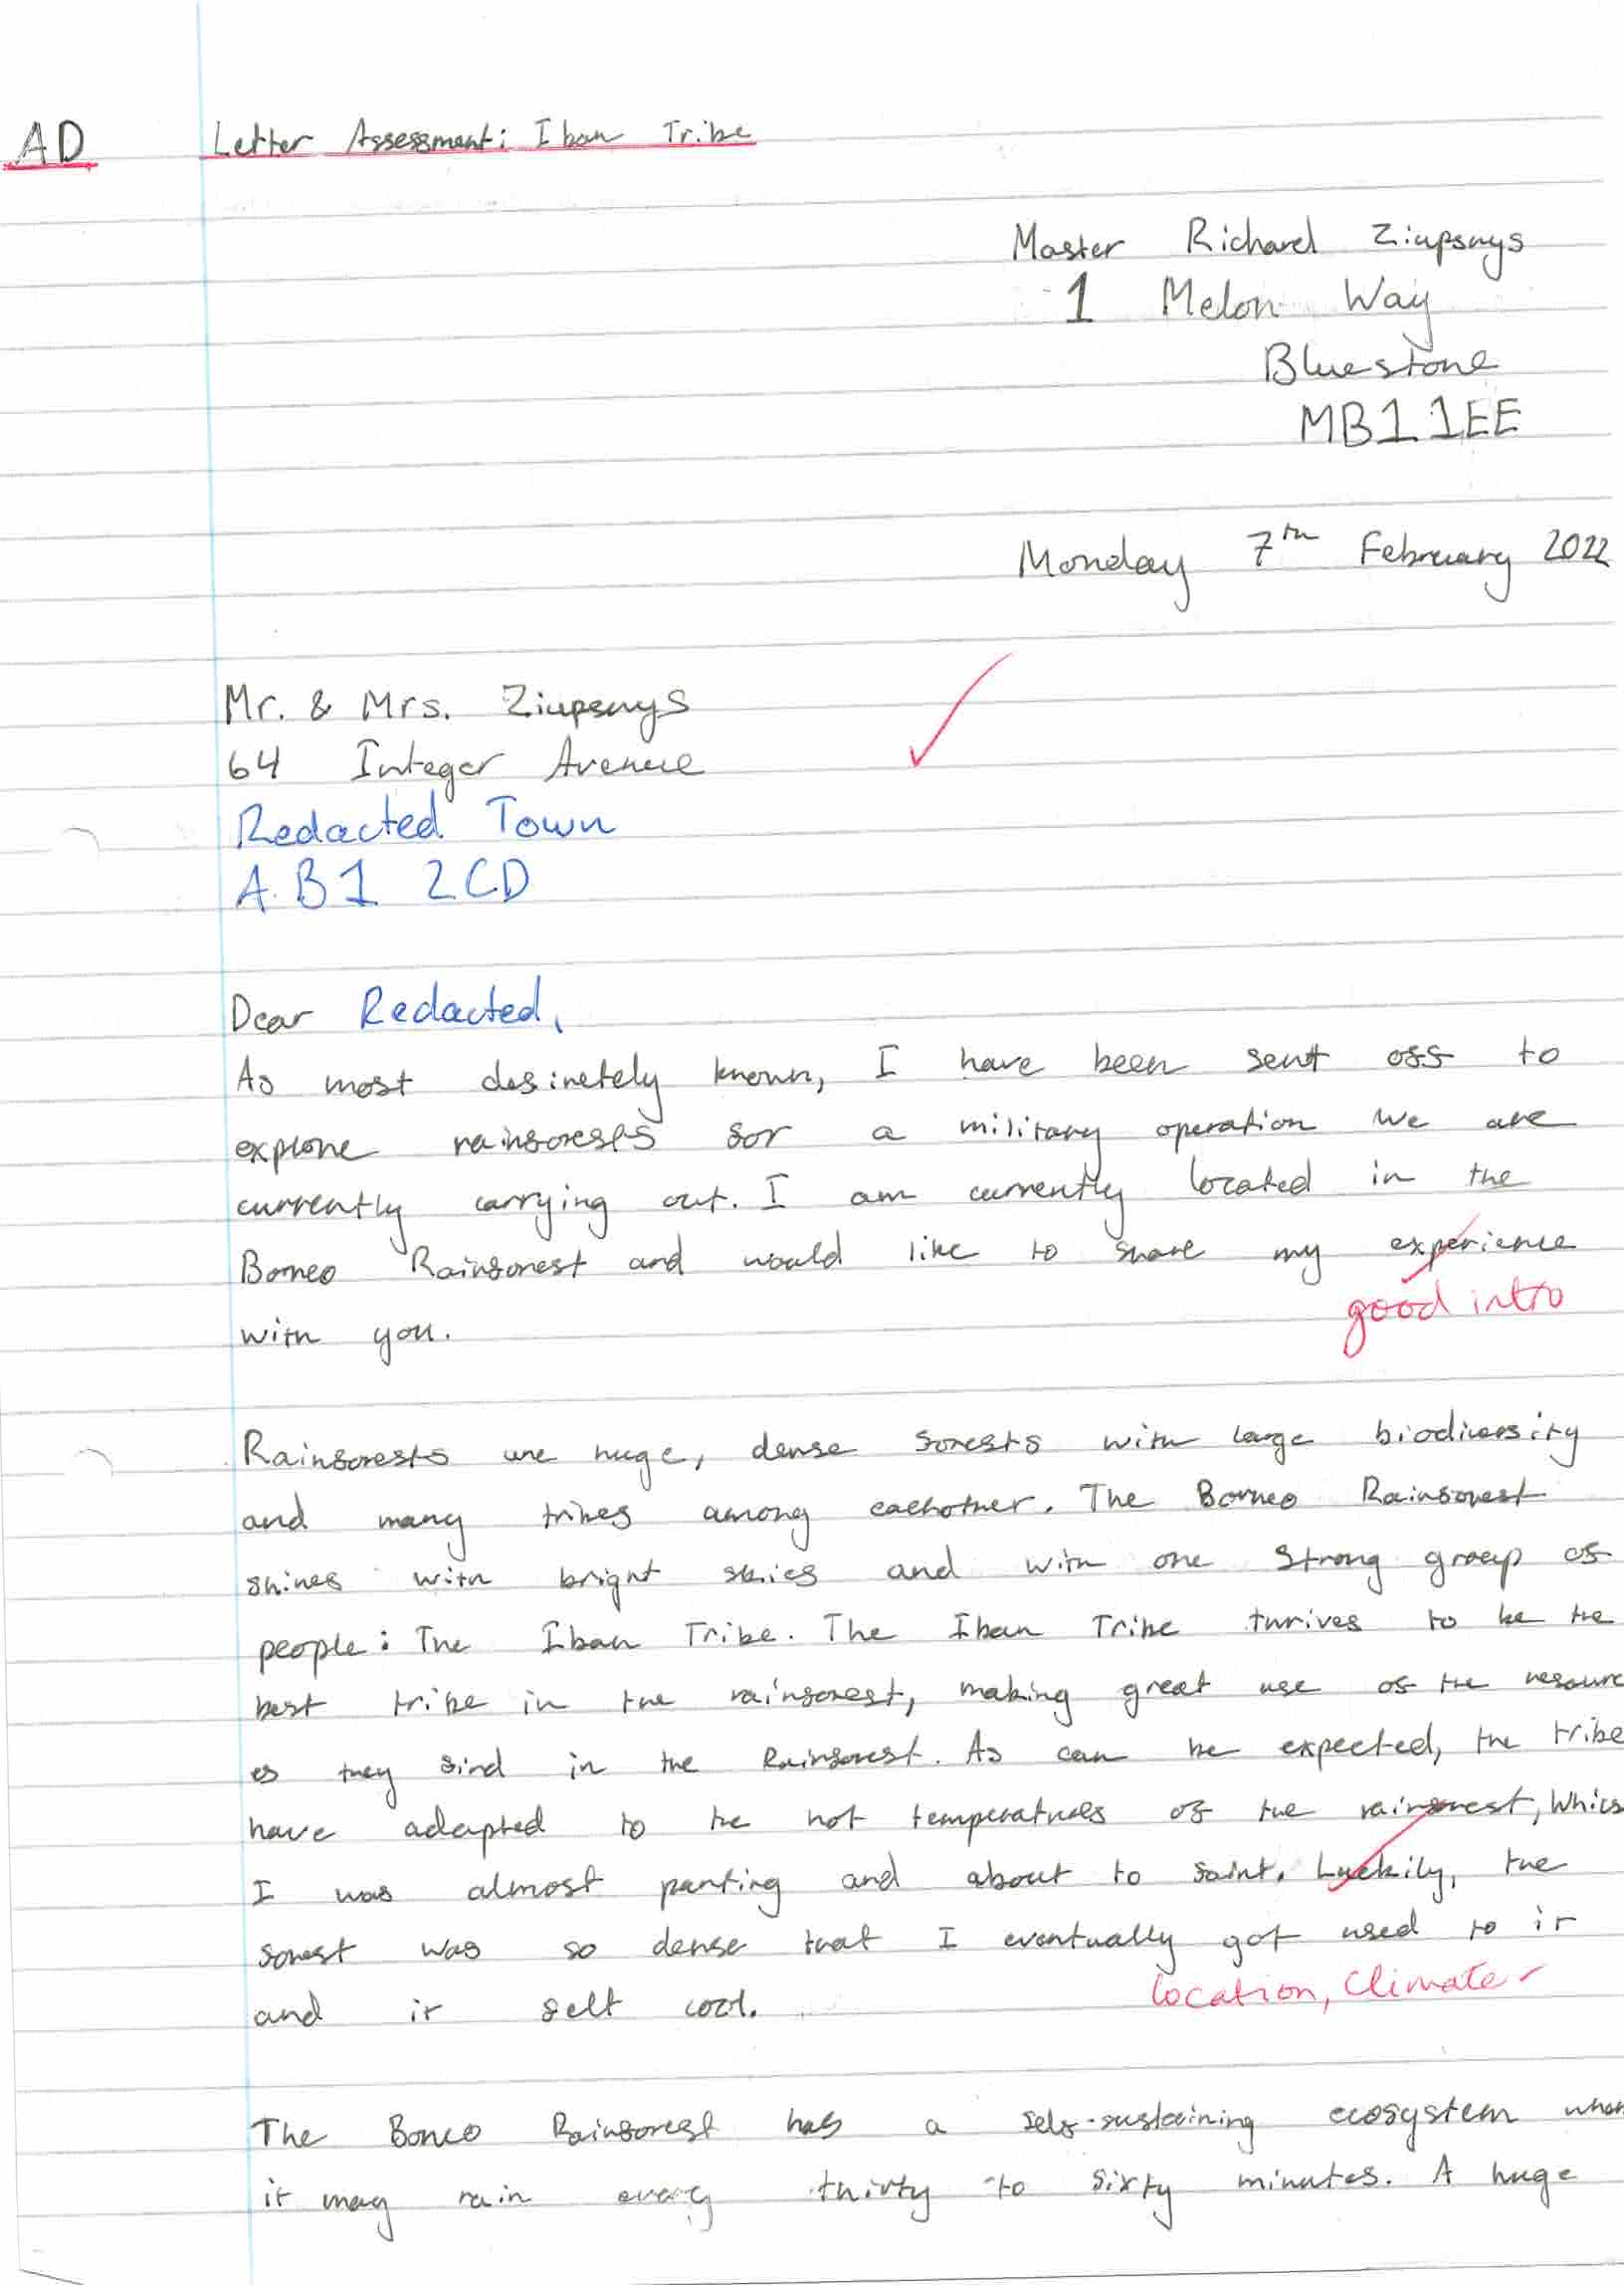 AD Letter Assessment: Iban Tribe
Master Richard Ziupsnys
1 Melon Way
Bluestone
MB1 1EE
Monday 7th February 2022
Mr. & Mrs. Ziupsnys
64 Integer Avenue
Redacted Town
AB1 2CD
Dear Redacted,
As most definetely known, I have been sent off to
explore rainforests for a military operation we are
currently carrying out. I am currently located in the
Borneo Rainforest and would like to share my experience
good intro
with you.
Rainforests are huge, dense forests with large biodiversity
and many tribes among eachother. The Borneo Rainforest
shines with bright skies and with one strong group of
people: The Iban Tribe. The Iban Tribe thrives to be the
best tribe in the rainforest, making great use of the resourc
es they find in the Rainforest. As can be expected, the tribe
have adapted to the hot temperatures of the rainforest, which
I was almost panting and about to faint. Luckily, the
forest was so dense that I eventually got used to it
and it felt cool.
location, climate
The Borneo Rainforest has a self-sustaining ecosystem
it may rain every thirty to sixty minutes. A huge